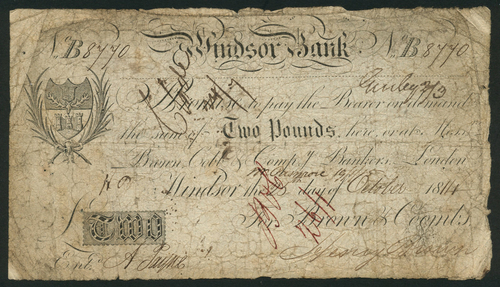 No. B8770 Windsor Bank No. B8770
I Promise to pay the Bearer on demand
the Sum of Two Pounds, here, or at Messrs.
Brown Cobb & Compy. Bankers, London
Windsor the day of October 1814
For Brown & Coombs
£ Two
Entd. A Payne Henry Brown